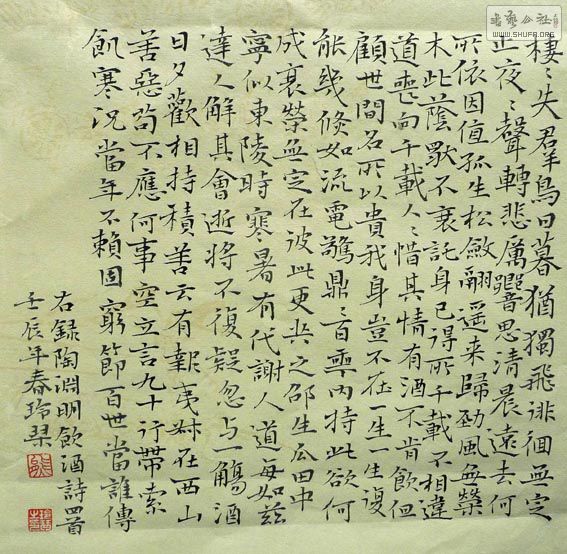 棲〻失羣鳥日暮猶獨飛徘徊無定
止夜〻聲轉悲厲響思清晨遠去何
所依因值孤生松斂翮遥来歸勁風無榮
木此蔭獨不衰託身已得所千載不相違
道喪向千載人〻惜其情有酒不肯飲但
顧世間名所以貴我身豈不在一生一生復
能幾倏如流電驚鼎〻百年內持此欲何
成衰榮無定在彼此更共之邵生瓜田中
寧似東陵時寒暑有代謝人道每如茲
達人解其會逝將不復疑忽与一觴酒
日夕歡相持積善云有報夷叔在西山
善惡苟不應何事空立言九十行帶索
飢寒況當年不賴固窮節百世當誰傳
右録陶淵明飲酒詩四首
壬辰年春玲琹
书艺公社
WWW.SHUFA.ORG